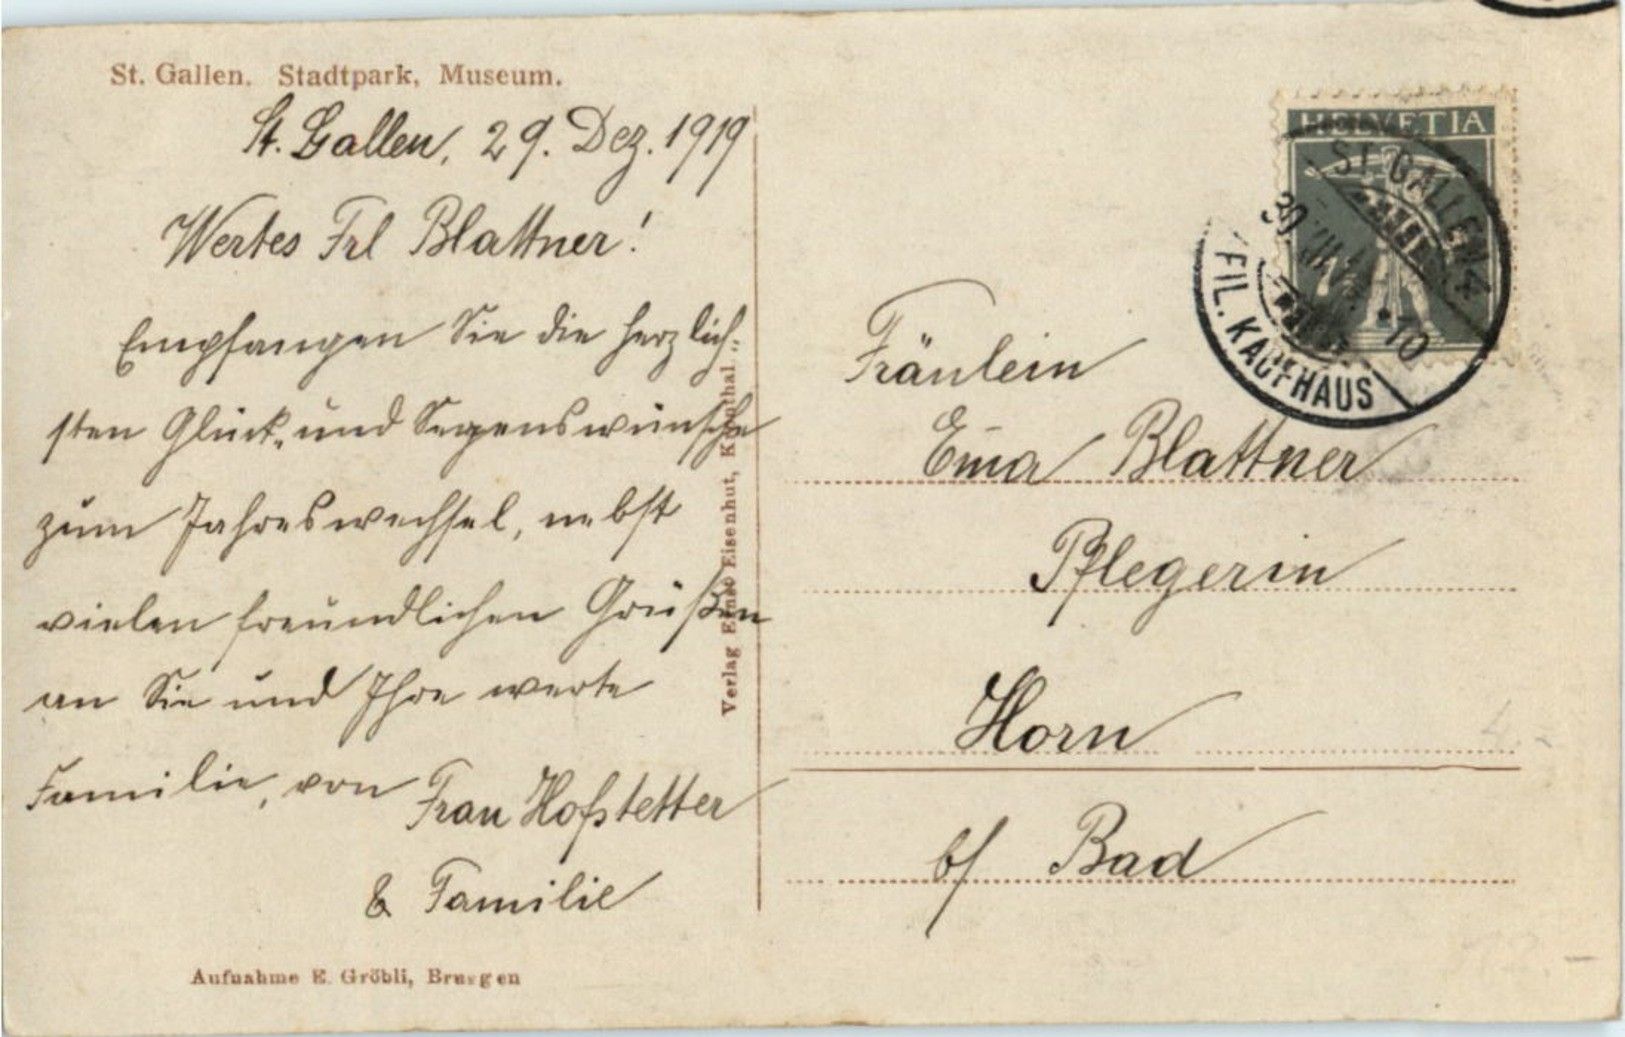 St. Gallen. Stadtpark, Museum.
St. Gallen, 29. Dez. 1919
Wertes Frl Blattner!
Empfangen Sie die herzlich-
sten Glück- und Segenswünsche
zum Jahreswechsel, nebst
vielen freundlichen Grüßen
an Sie und Ihre werte
Familie, von Frau Hofstetter
& Familie
Aufnahme E. Gröbli, Bruggen
Verlag Ernst Eisenhut,
HELVETIA
ST. GALLEN 4
30 XII 10
FIL. KAUFHAUS
Fräulein
Ema Blattner
Pflegerin
Horn
b/ Bad